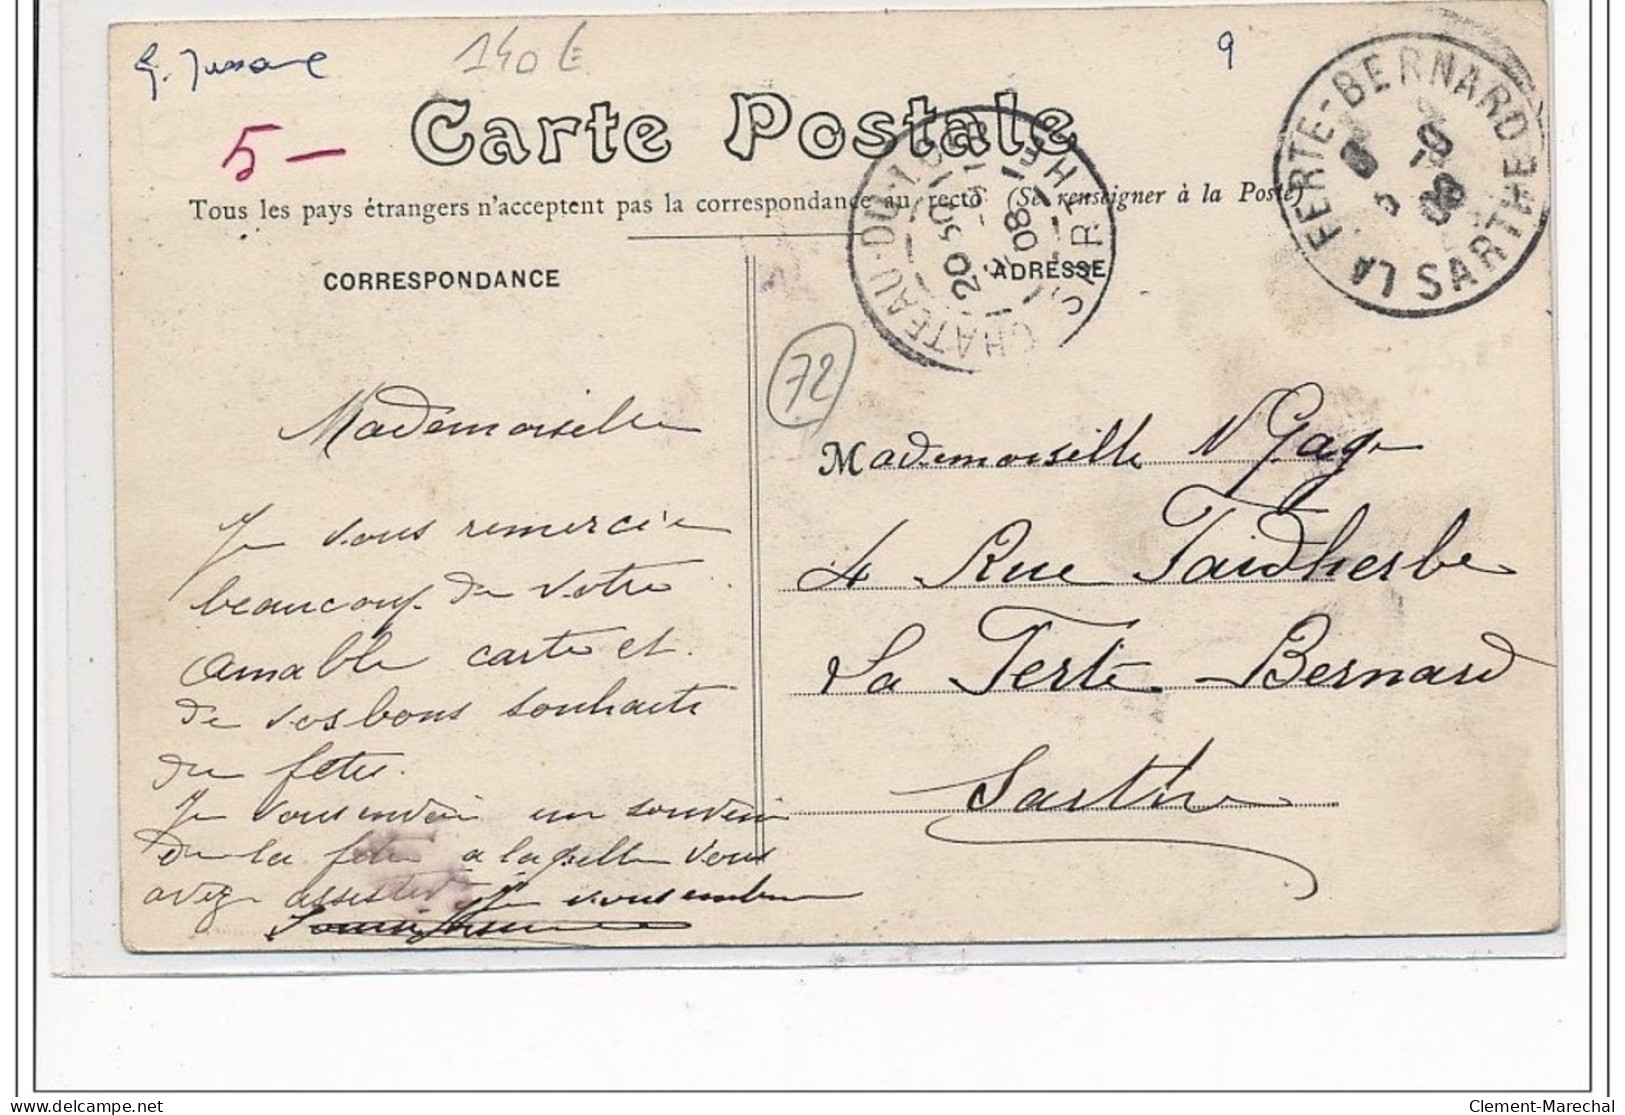 140 E
9
5 —
Carte Postale
Tous les pays étrangers n'acceptent pas la correspondance au recto (Se renseigner à la Poste)
LA FERTE-BERNARD SARTHE
CHATEAU-DU-LOIR SARTHE
20 50
08
CORRESPONDANCE
ADRESSE
72
Mademoiselle
Je vous remercie
beaucoup de votre
aimable carte et
de vos bons souhaits
de fête.
Je vous envoie un souvenir
de la fête a laquelle vous
avez assisté Je vous
Mademoiselle Gage
4 Rue Faidherbe
La Ferté-Bernard
Sarthe
Clement-Marechal